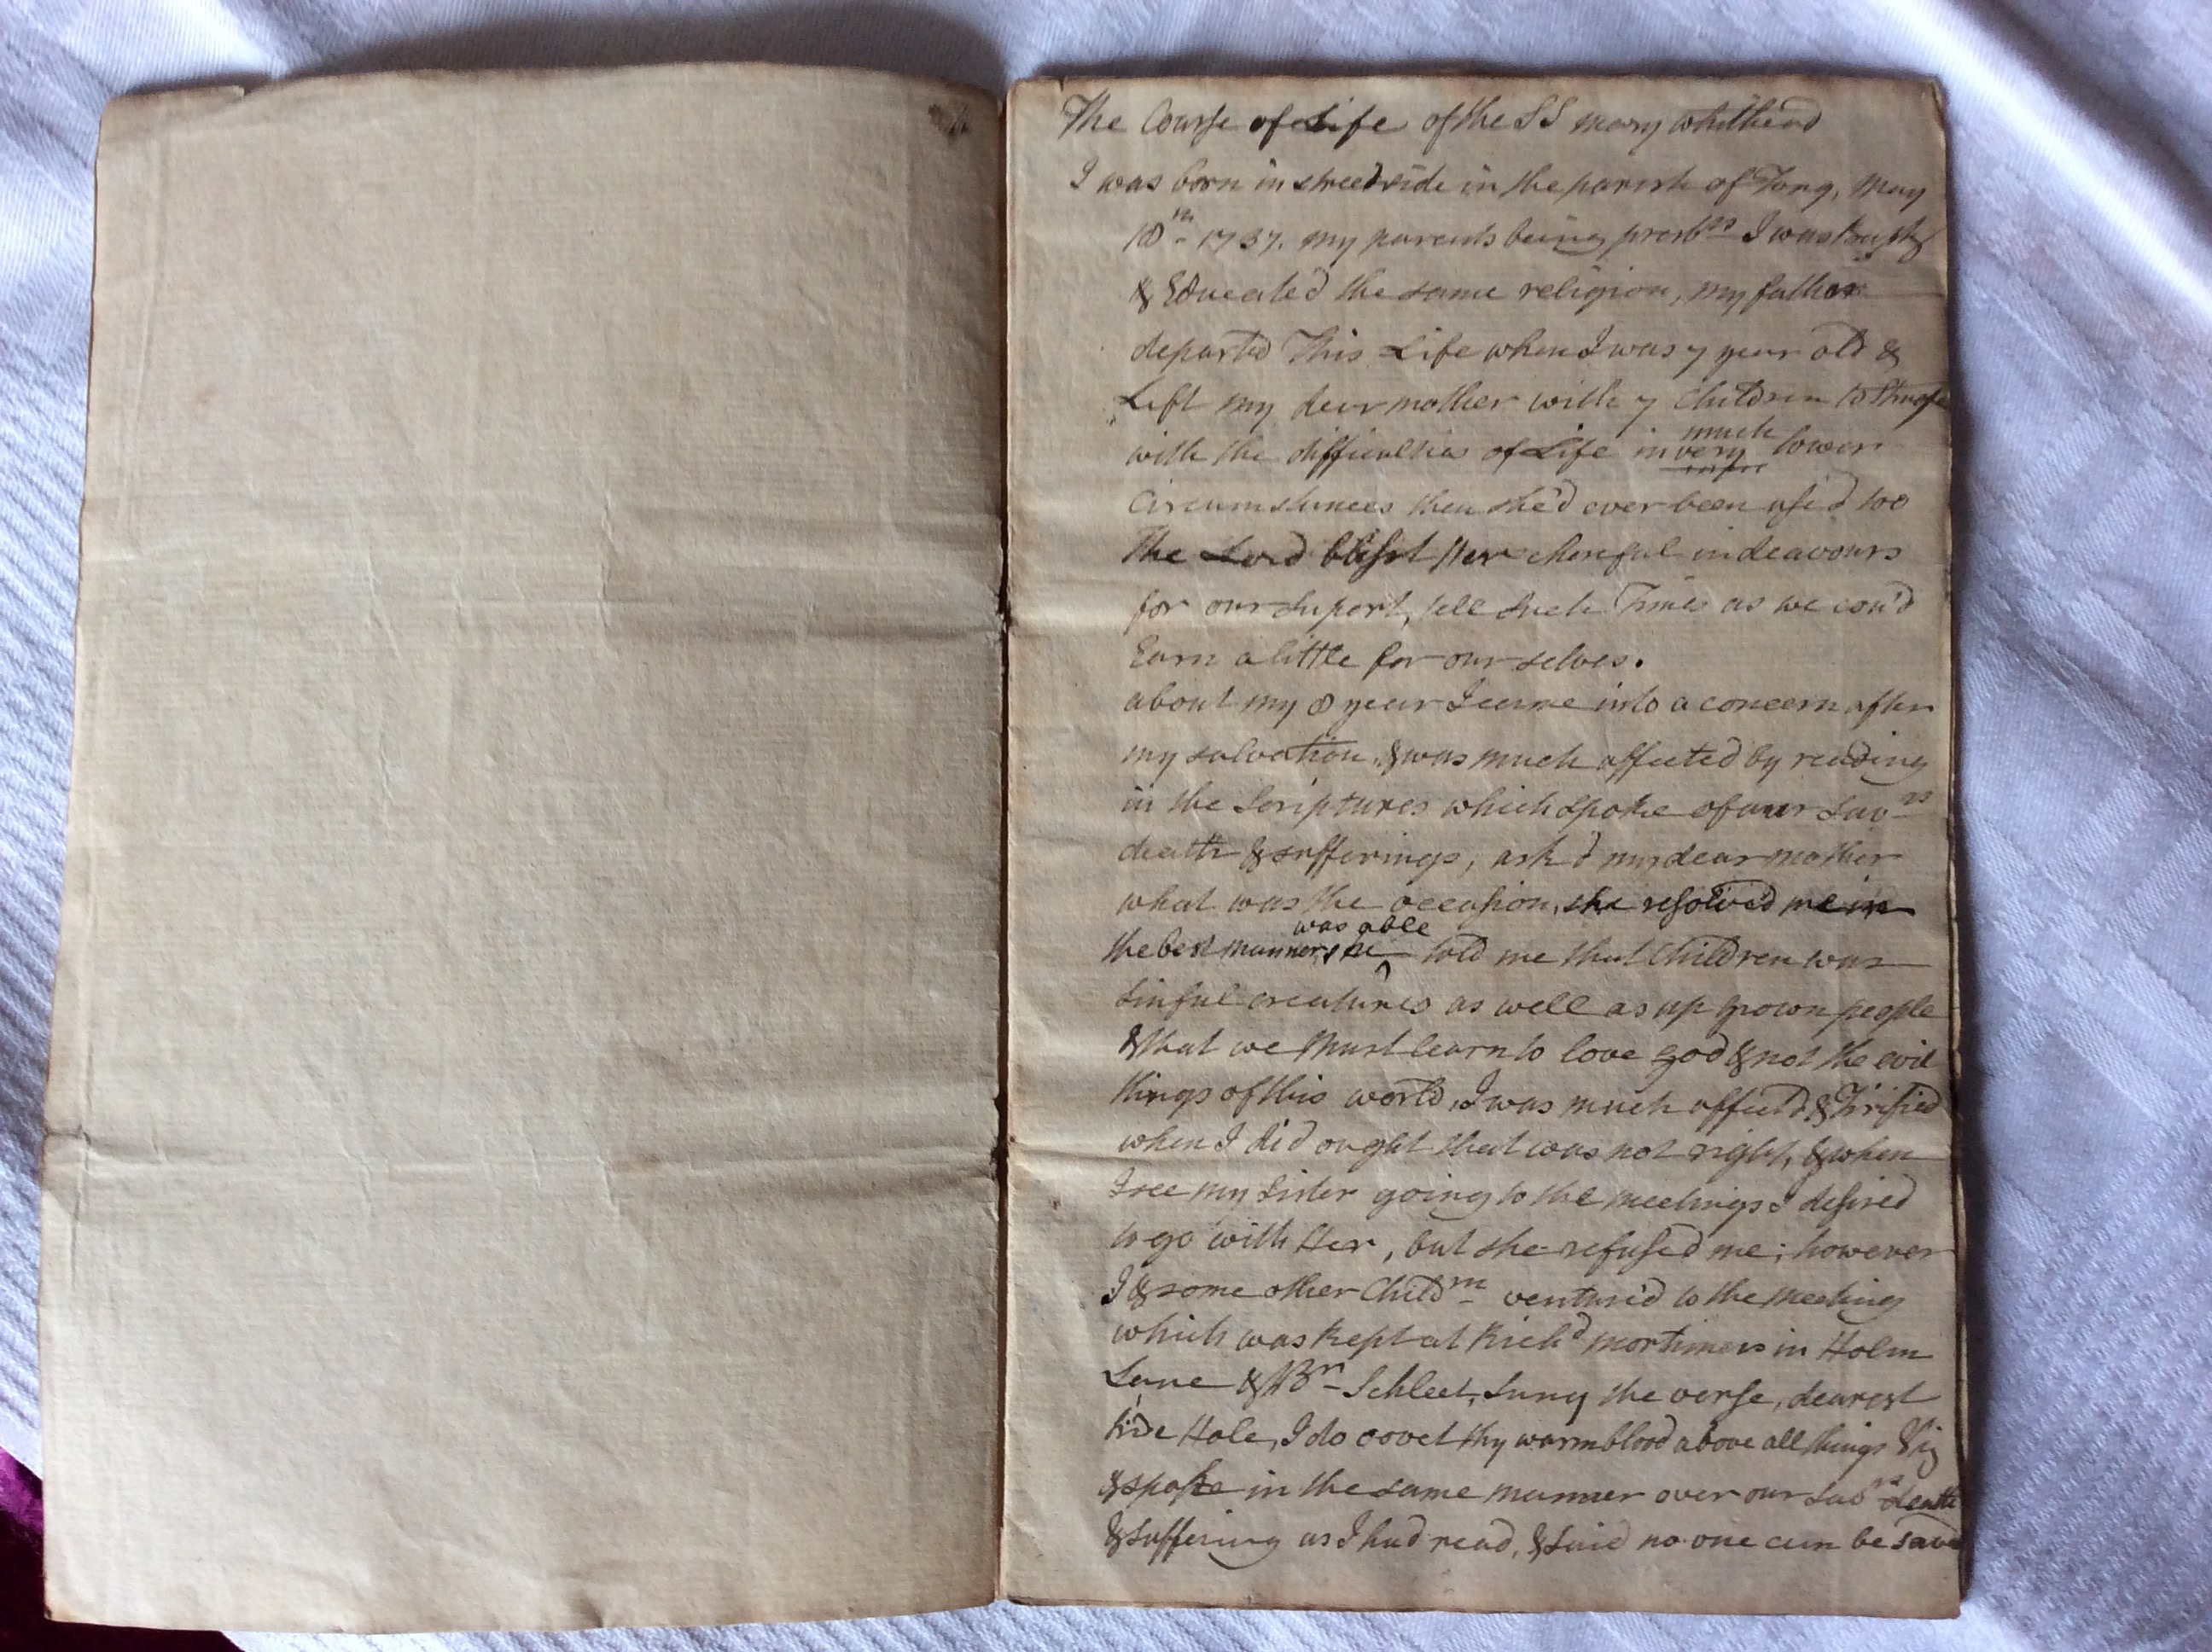 The Course of Life of the SS mary whithead
I was born in streetside in the parish of Tong, may
18th 1737. my parents being presbns I was baptz
& Educated the same religion, my father
departed This Life when I was 7 year old &
Left my dear mother with 7 children to
with the difficulties of Life in very much lower
Circumstances then she'd ever been use'd too
The Lord blesst Her cheerful indeavours
for our suport, till such Times as we cou'd
Earn a little for our selves.
about my 8 year I came into a concern after
my salvation, & was much affected by reading
in the Scriptures which spoke of our Savrs
death & sufferings, ask'd my dear mother
what was the occasion, she resolved me in
the best manner she was able told me that Children was
sinful creatures as well as up grown people
& that we must learn to love god & not the evil
things of this world, I was much affected & Tirified
when I did ought that was not right, & when
I see my sister going to the meetings I desired
to go with Her, but she refused me; however
I & some other Childrn ventured to the meeting
which was kept at Richd mortimers in Holm
Lane & Br Schlect, sung the verse, dearest
side Hole, I do covet thy warm blood above all things
& spoke in the same manner over our Savrs death
& suffering as I had read, & said no one can be saved